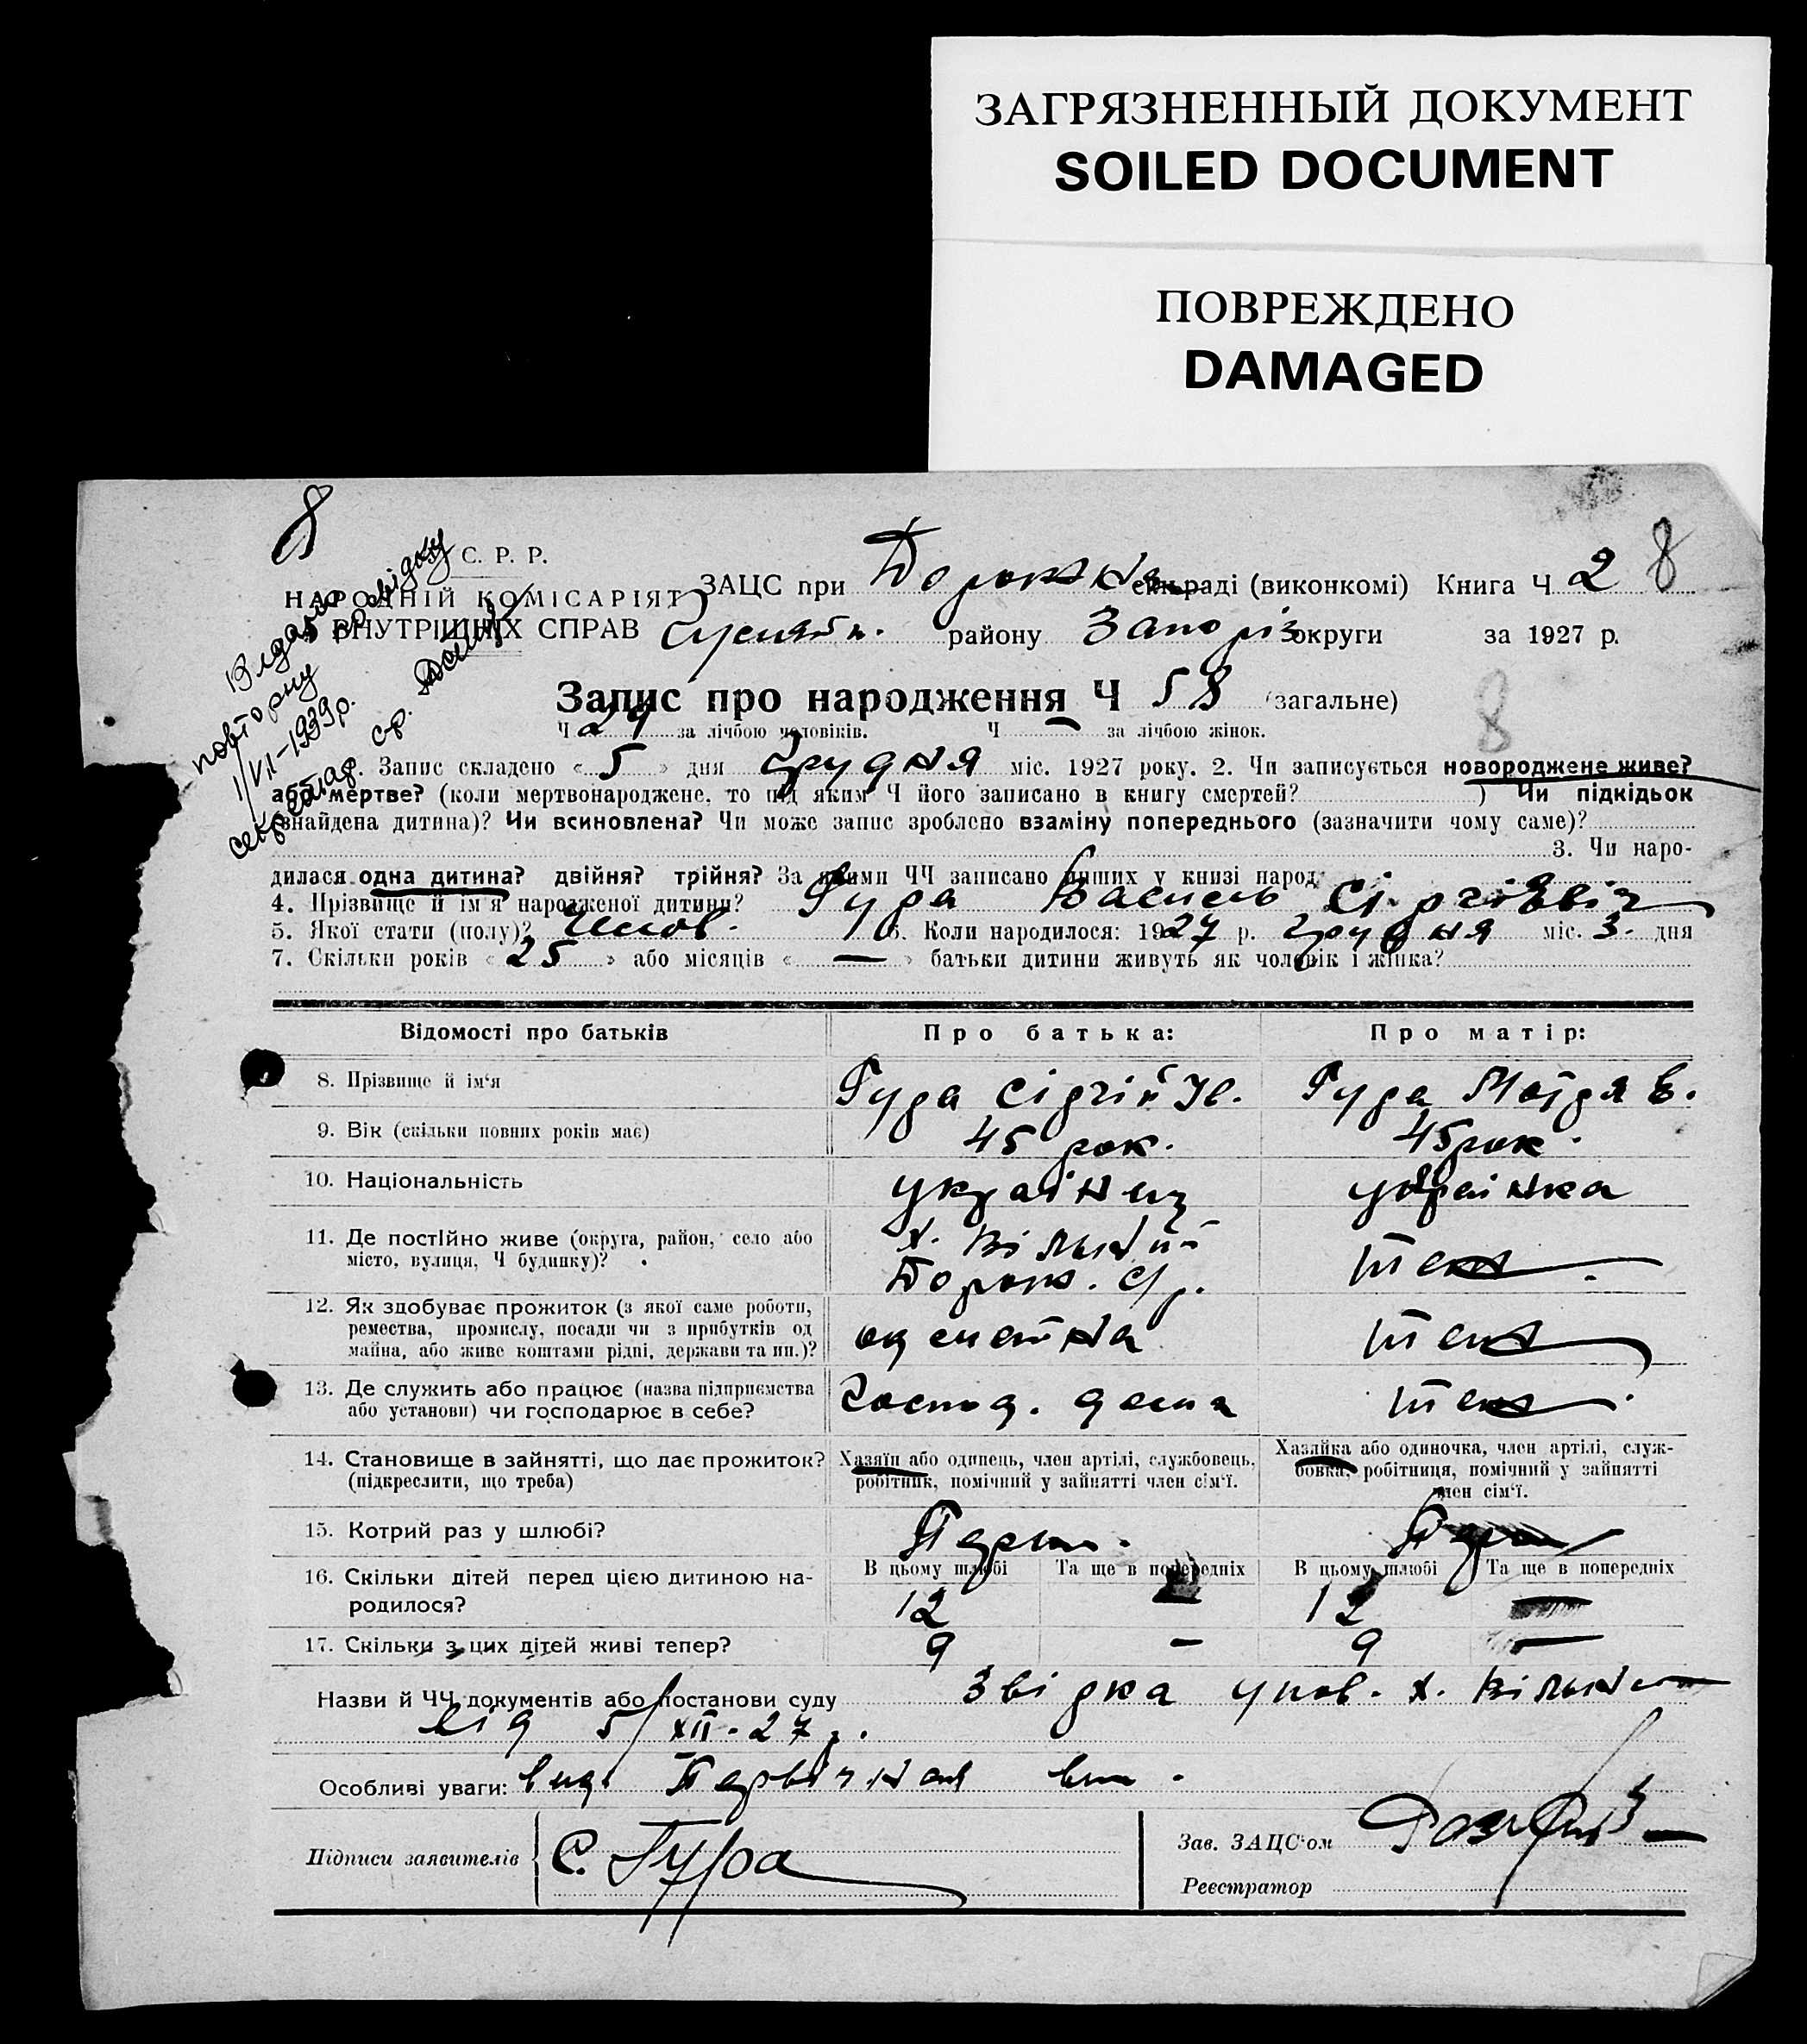 ЗАГРЯЗНЕННЫЙ ДОКУМЕНТ
SOILED DOCUMENT
ПОВРЕЖДЕНО
DAMAGED
8
С. Р. Р.
НАРОДНІЙ КОМІСАРІЯТ
ВНУТРІШНІХ СПРАВ
ЗАЦС при раді (виконкомі) Книга Ч 2 8
району Запоріз округи за 1927 р.
Видано
повторну
1/VII-1939р.
секретар с/р.
Запис про народження Ч 58 (загальне)
Ч 29 за лічбою чоловіків. Ч — за лічбою жінок.
8
1. Запис складено « 5 » дня Грудня міс. 1927 року. 2. Чи записується новороджене живе?
або мертве? (коли мертвонароджене, то під яким Ч його записано в книгу смертей? ) Чи підкідьок
(знайдена дитина)? Чи всиновлена? Чи може запис зроблено взаміну попереднього (зазначити чому саме)?
3. Чи наро-
дилася одна дитина? двійня? трійня? За якими ЧЧ записано инших у книзі народ.
4. Прізвище й ім'я народженої дитини? Гура Василь Сі́ргіевіч
5. Якої стати (полу)? Чолов. 6. Коли народилося: 1927 р. грудня міс. 3. дня
7. Скільки років « 25 » або місяців « — » батьки дитини живуть як чоловік і жінка?
Відомості про батьків Про батька: Про матір:
8. Прізвище й ім'я Гура Сіргій Ів. Гура Мотря Е.
9. Вік (скільки повних років має) 45 рок. 45 рок.
10. Національність українец українка
11. Де постійно живе (округа, район, село або
місто, вулиця, Ч будинку)?
х. Вільний
Дорож. с/р.
теж
12. Як здобуває прожиток (з якої саме роботи,
ремества, промислу, посади чи з прибутків од
майна, або живе коштами рідні, держави та ин.)?
теж
13. Де служить або працює (назва підприємства
або установи) чи господарює в себе?
Господ. дома
теж
14. Становище в зайнятті, що дає прожиток?
(підкреслити, що треба)
Хазяїн або одинець, член артілі, службовець,
робітник, помічний у зайнятті член сім'ї.
Хазяйка або одиночка, член артілі, служ-
бовка, робітниця, помічний у зайнятті
член сім'ї.
15. Котрий раз у шлюбі? Перш. Перш
16. Скільки дітей перед цією дитиною на-
родилося?
В цьому шлюбі Та ще в попередніх В цьому шлюбі Та ще в попередніх
12 — 12 —
17. Скільки з цих дітей живі тепер? 9 — 9 —
Назви й ЧЧ документів або постанови суду Звідка упов. х. Вільний
від 5/XII-27р.
Особливі уваги: вид. Первічная вип.
Підписи заявителів С. Гура
Зав. ЗАЦС'ом
Реєстратор